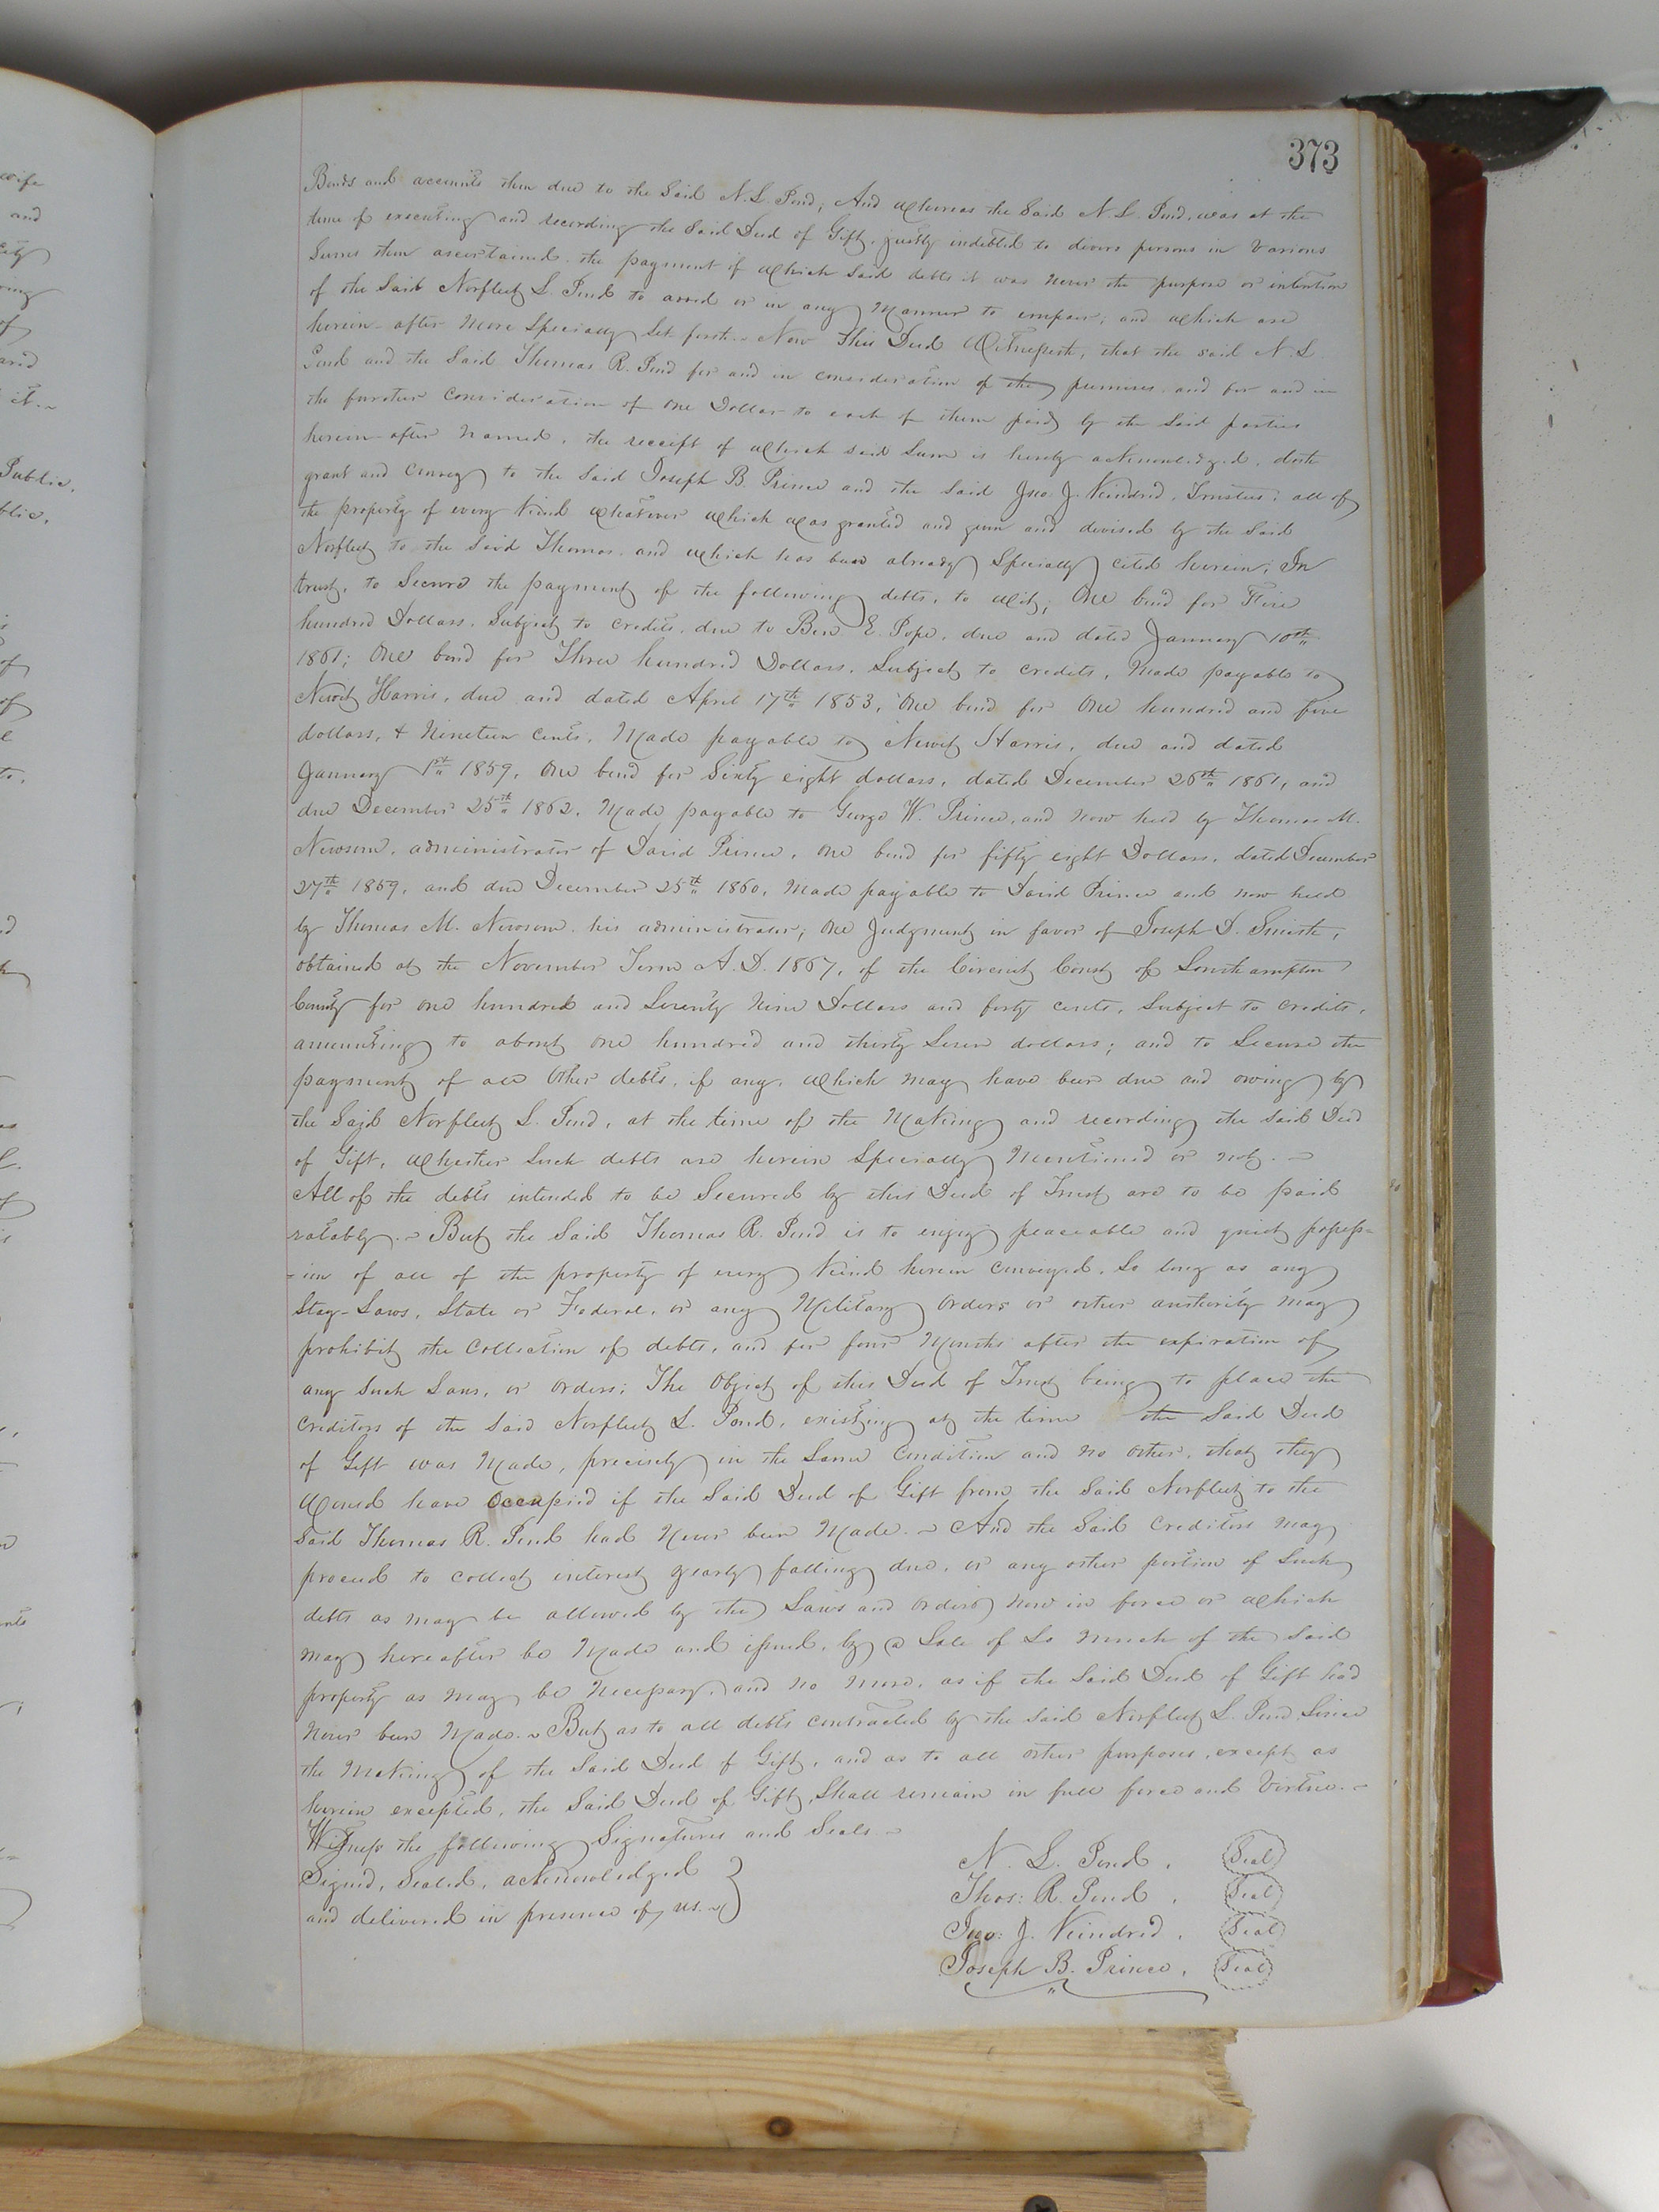 373
Bonds and accounts then due to the Said N. L. Pond; And Whereas the Said N. L. Pond, was at the
time of executing and recording the Said Deed of Gift, justly indebted to divers persons in various
Sums then ascertained, the payment of which Said debts it was never the purpose or intention
of the Said Norfleet L. Pond to avoid or in any Manner to impair; and which are
herein-after More Specially Set forth. Now This Deed Witnesseth, that the said N. L.
Pond and the Said Thomas R. Pond for and in consideration of the premises and for and in
the further Consideration of One Dollar to each of them paid by the Said parties
herein-after Named, the receipt of which said Sum is hereby acknowledged, doth
grant and Convey to the Said Joseph B. Prince and the Said Jno: J. Kindred, Trustees; all of
the property of every Kind Whatever which was granted and given and devised by the Said
Norfleet to the Said Thomas and which has been already Specially cited herein; In
trust, to Secure the payment of the following debts, to Wit; One bond for Five
hundred Dollars, Subject to Credits, due to Ben E. Pope, due and dated January 10th
1861; One bond for Three hundred Dollars, Subject to Credits, Made payable to
Newit Harris, due and dated April 17th 1853, One bond for One hundred and five
dollars, & Nineteen Cents, Made payable to Newit Harris, due and dated
January 1st 1859, One bond for Sixty eight dollars, dated December 26th 1861, and
due December 25th 1862, Made payable to George W. Prince, and Now held by Thomas M.
Newsom, administrator of David Prince, One bond for fifty eight Dollars, dated December
27th 1859, and due December 25th 1860, Made payable to David Prince and now held
by Thomas M. Newsom his administrator; One Judgment in favor of Joseph D. Smith,
obtained at the November Term A.D. 1867, of the Circuit Court of Southampton
County for one hundred and Seventy Nine Dollars and forty cents, Subject to credits,
amounting to about one hundred and thirty Seven dollars; and to Secure the
payment of all Other debts, if any, Which may have been due and owing by
the Said Norfleet L. Pond, at the time of the Making and recording the said Deed
of Gift, Whether Such debts are herein Specially Mentioned or not. ~
All of the debts intended to be Secured by this Deed of Trust are to be paid
ratably. ~ But the Said Thomas R. Pond is to enjoy peaceable and quiet possess-
-ion of all of the property of every Kind herein Conveyed, So long as any
Stay-Laws, State or Federal, or any Military Orders or other authority may
prohibit the Collection of debts, and for four Months after the expiration of
any Such Laws, or Orders; The Object of this Deed of Trust being to place the
Creditors of the Said Norfleet L. Pond, existing at the time the Said Deed
of Gift was Made, precisely in the Same Condition and no other, that they
Would have Occupied if the Said Deed of Gift from the Said Norfleet to the
Said Thomas R. Pond had Never been Made. ~ And the Said Creditors may
proceed to collect interest yearly falling due, or any other portion of Such
debts as may be allowed by the Laws and Orders Now in force or which
may hereafter be Made and issued, by a Sale of So Much of the Said
property as may be Necessary, and no More, as if the Said Deed of Gift had
Never been Made. ~ But as to all debts contracted by the Said Norfleet L. Pond Since
the Making of the Said Deed of Gift, and as to all other purposes, except as
herein excepted, the Said Deed of Gift, Shall remain in full force and Virtue. ~
Witness the following Signatures and Seals ~
Signed, Sealed, acknowledged
and delivered in presence of us. ~
N. L. Pond, Seal
Thos: R. Pond, Seal
Jno: J. Kindred, Seal
Joseph B. Prince, Seal